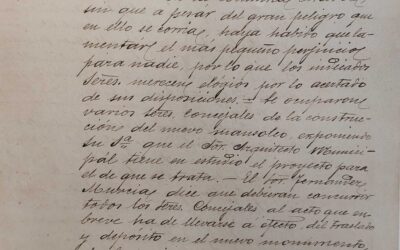 sin que a pesar del gran peligro que
en ello se corria, haya habido que la-
mentar el mas pequeño perjuicio
para nadie, por lo que los indicados
Sres. merecen elogios por lo acertado
de sus disposiciones. = Se ocuparon
varios Sres. Concejales de la construc-
ción del nuevo mausoleo, exponiendo
su Sª que el Sor. Arquitecto Munici-
pal tiene en estudio el proyecto para
el de que se trata. = El Sor Fernandez
Murcia, dice que deberán concurrir
todos los Sres. Concejales al acto que en
breve ha de llevarse a efecto, del traslado
y depósito en el nuevo monumento